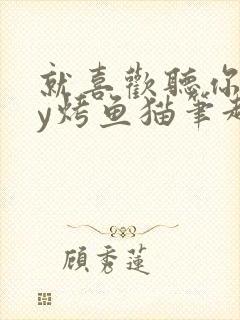 就喜歡聽你
y烤鱼猫笔趣
顧秀蓮